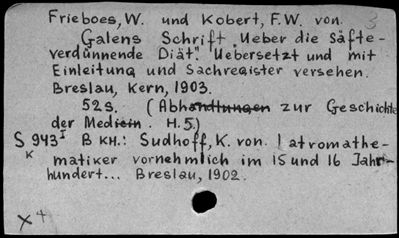 Frieboes, W. und Kobert, F.W. von. 3
Galens Schrift „Ueber die säfte-
verdünnende Diät." Uebersetzt und mit
Einleitung und Sachregister versehen.
Breslau, Kern, 1903.
52s. (Abhandlungen zur Geschichte
der Medizin. H.5.)
S 943 I B KH.: Sudhoff, K. von. Iatromathe-
K ematiker vornehmlich im 15 und 16 Jahr-
hundert... Breslau, 1902.
X 4